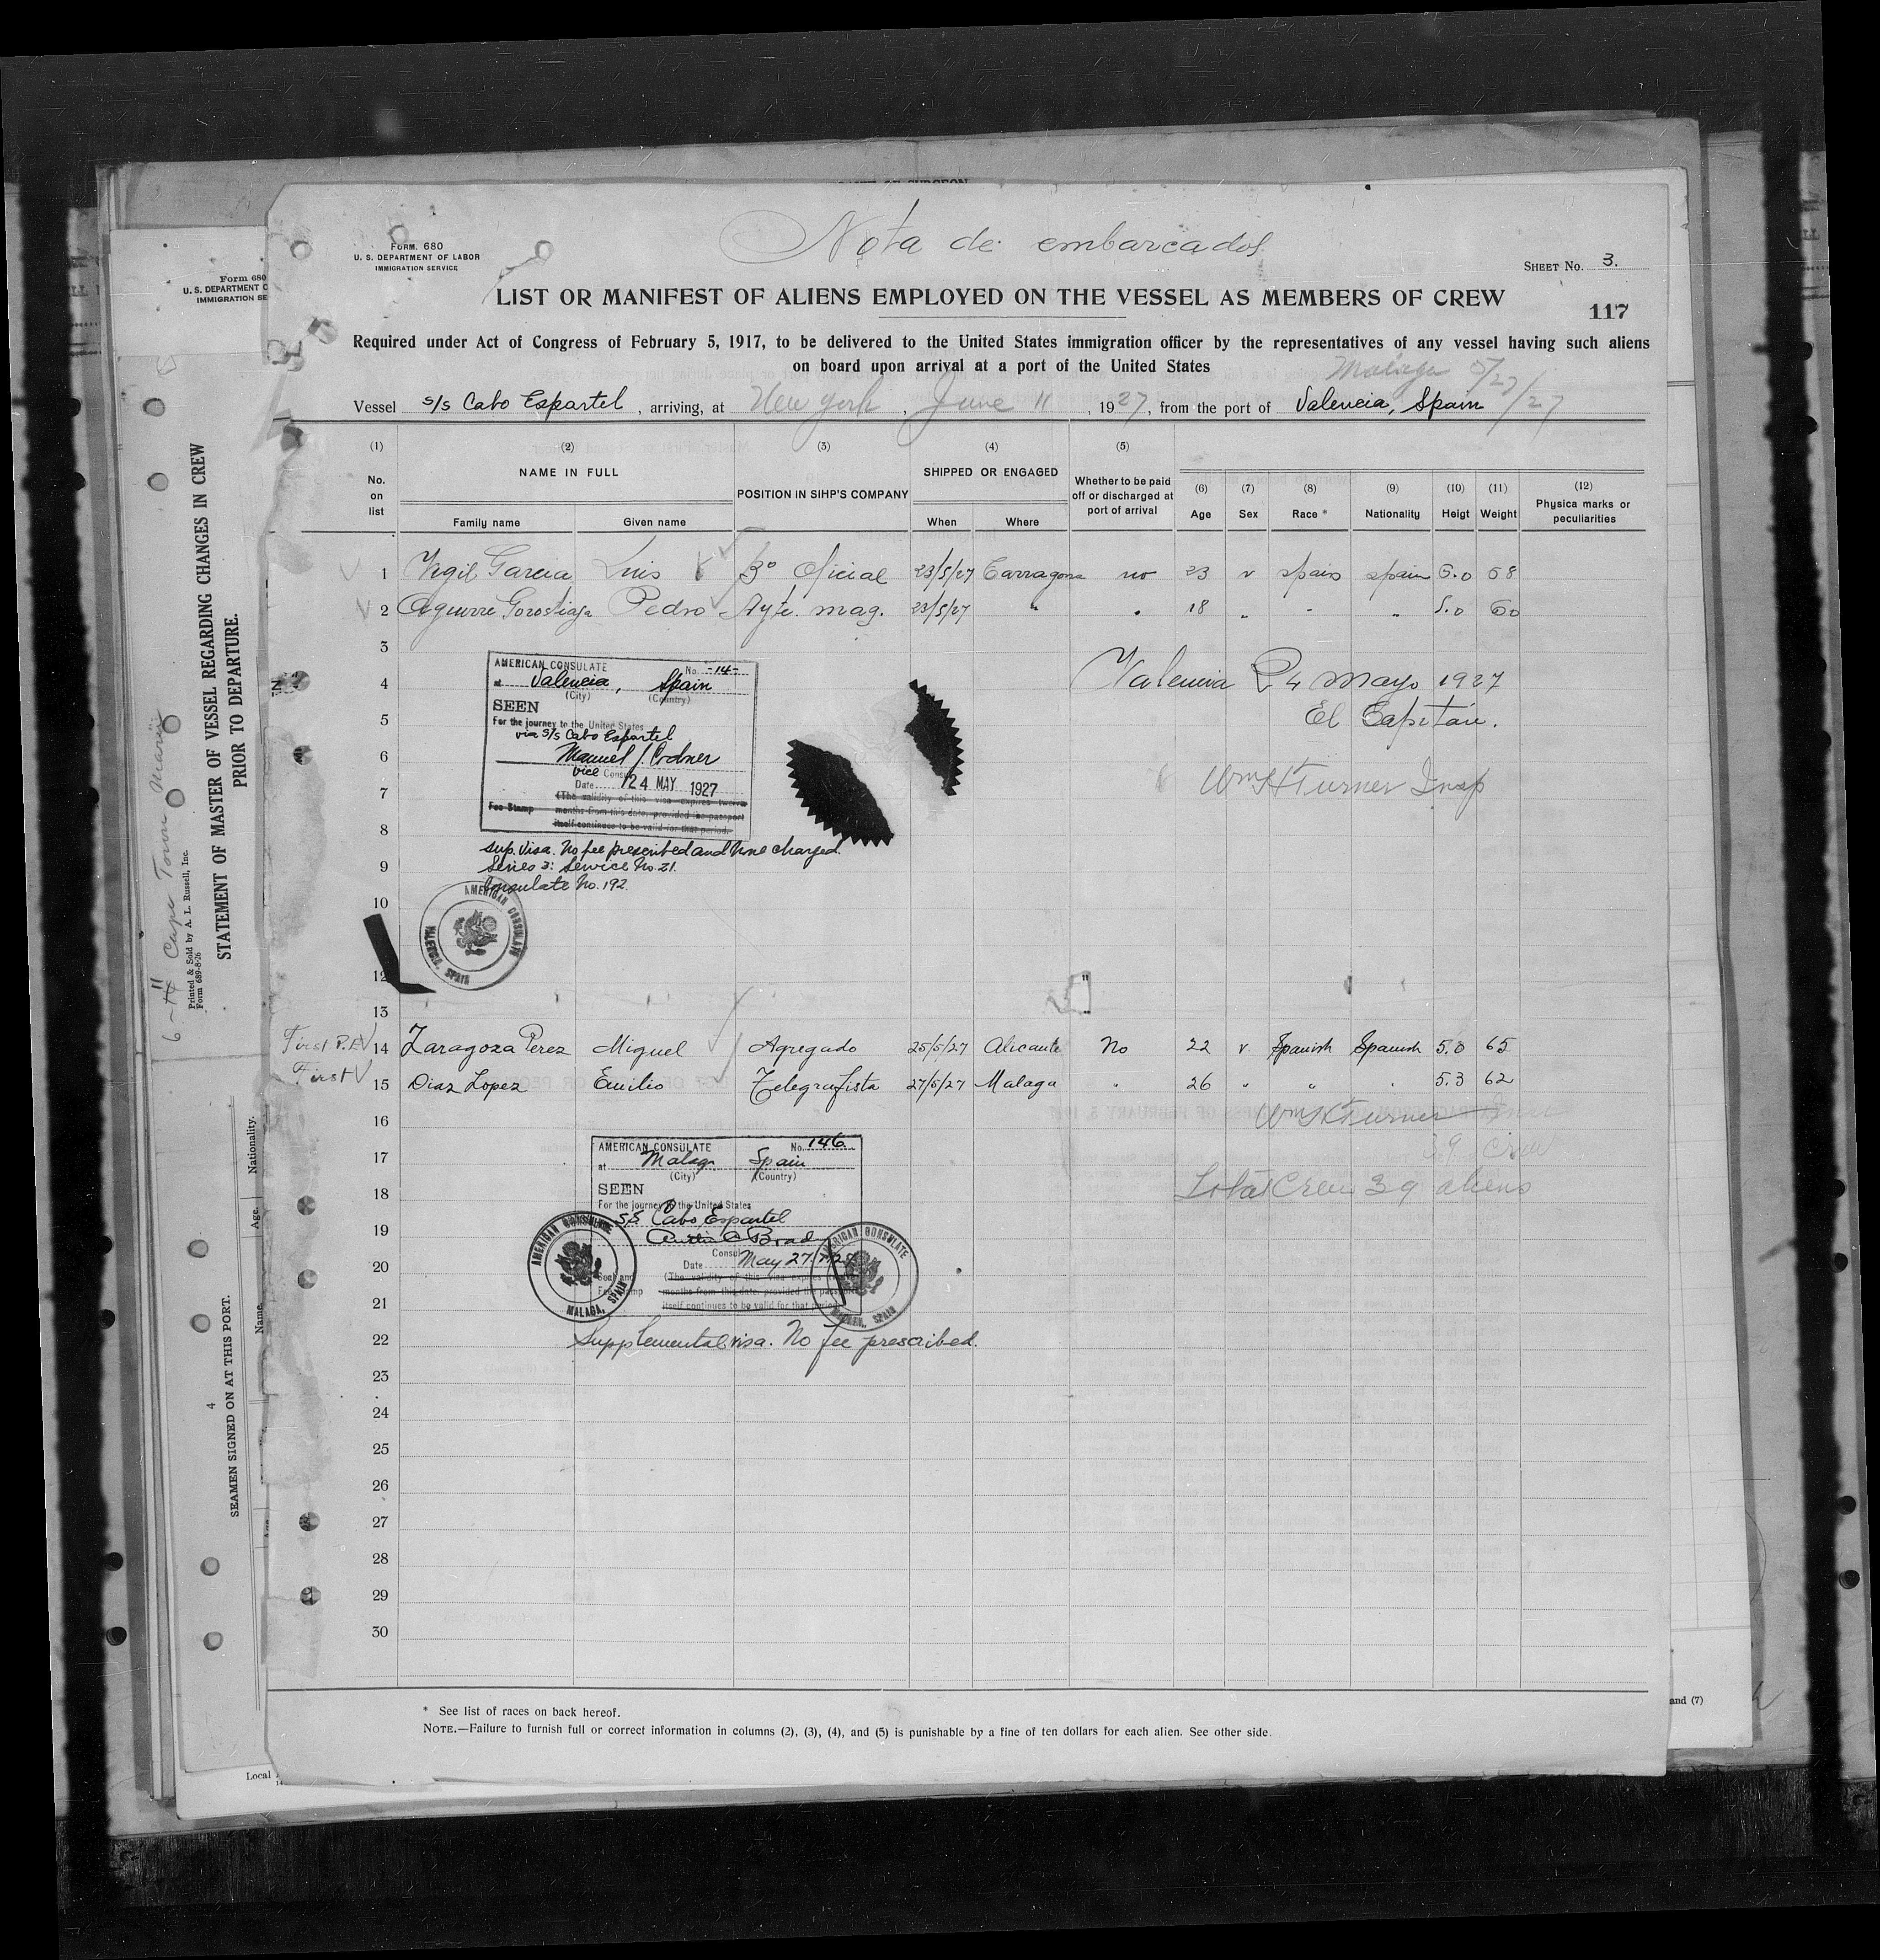 Nota de embarcados
FORM. 680
U. S. DEPARTMENT OF LABOR
IMMIGRATION SERVICE
SHEET No. 3.
LIST OR MANIFEST OF ALIENS EMPLOYED ON THE VESSEL AS MEMBERS OF CREW
117
Required under Act of Congress of February 5, 1917, to be delivered to the United States immigration officer by the representatives of any vessel having such aliens
on board upon arrival at a port of the United States
Malaga 5/27/27
Vessel s/s Cabo Espartel, arriving, at New York, June 11, 1927, from the port of Valencia, Spain
(1) (2) (3) (4) (5)
No. on list NAME IN FULL POSITION IN SIHP'S COMPANY SHIPPED OR ENGAGED Whether to be paid off or discharged at port of arrival (6) Age (7) Sex (8) Race * (9) Nationality (10) Heigt (11) Weight (12) Physica marks or peculiarities
Family name Given name When Where
1 Vigil Garcia Luis 3º Oficial 23/5/27 Tarragona no 23 v spain spain 5.0 58
2 Aguirre Gorostiaga Pedro Ayte. maq. 23/5/27 " " 18 " " " 5.0 60
3
4
5
6
7
8
9
10
12
13
AMERICAN CONSULATE No. -14-
at Valencia, Spain
(City) (Country)
SEEN
For the journey to the United States
via s/s Cabo Espartel
Manuel J. Codner
Vice Consul
Date 24 MAY 1927
(The validity of this visa expires twelve
Fee Stamp months from this date, provided the passport
itself continues to be valid for that period.
Sup. Visa. No fee prescribed and none charged.
Series 3: Service No. 21.
Consulate No. 192.
AMERICAN CONSULATE
VALENCIA, SPAIN
Valencia 24 Mayo 1927
El Capitán.
Wm H Turner Insp
First P.E. 14 Zaragoza Perez Miguel Agregado 25/5/27 Alicante No 22 v. Spanish Spanish 5.0 65
First 15 Diaz Lopez Emilio Telegrafista 27/5/27 Malaga " 26 " " " 5.3 62
Wm H Turner Insp
39 Crew
Total Crew 39 aliens
16
17
18
19
20
21
22
23
24
25
26
27
28
29
30
AMERICAN CONSULATE No. 146
at Malaga Spain
(City) (Country)
SEEN
For the journey to the United States
S.S. Cabo Espartel
Austin C Brady
Consul
Date May 27, 1927
(The validity of this visa expires
months from this date, provided the passport
itself continues to be valid for that period
AMERICAN CONSULATE
MALAGA, SPAIN
AMERICAN CONSULATE
MALAGA, SPAIN
Supplemental visa. No fee prescribed.
* See list of races on back hereof.
NOTE.—Failure to furnish full or correct information in columns (2), (3), (4), and (5) is punishable by a fine of ten dollars for each alien. See other side.
Form 680
U. S. DEPARTMENT O
IMMIGRATION SE
STATEMENT OF MASTER OF VESSEL REGARDING CHANGES IN CREW
PRIOR TO DEPARTURE.
Printed & Sold by A. L. Russell, Inc.
Form 689-8-26
Cape Town
SEAMEN SIGNED ON AT THIS PORT.
4
Name.
Age.
Nationality.
Local
and (7)